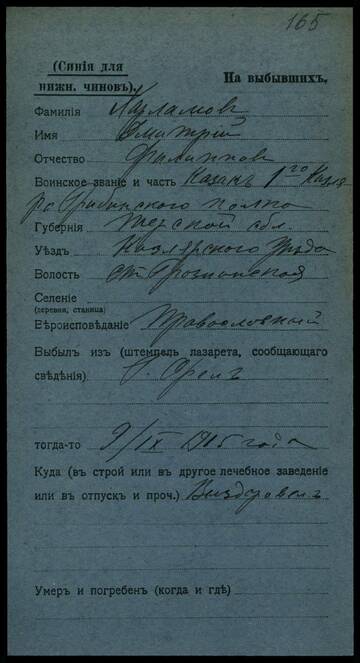 165
(Синія для нижн. чиновъ).
На выбывшихъ.
Фамилія Харламовъ
Имя Дмитрій
Отчество Филиппов
Воинское званіе и часть Казакъ 1го Кизля
ро Гребенского полка
Губернія Терской обл.
Уѣздъ Кизлярского
Волость ст. Грозненская
Селеніе
(деревня, станица)
Вѣроисповѣданіе Православный
Выбылъ изъ (штемпель лазарета, сообщающаго
свѣдѣнія) г. Орелъ
тогда-то 9/IX 1915 года
Куда (въ строй или въ другое лечебное заведеніе
или въ отпускъ и проч.) Выздоровелъ
Умеръ и погребенъ (когда и гдѣ)